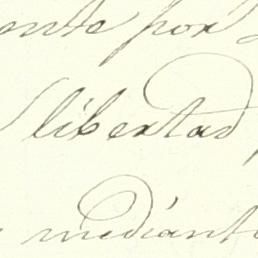 ente por
libertad
mediant